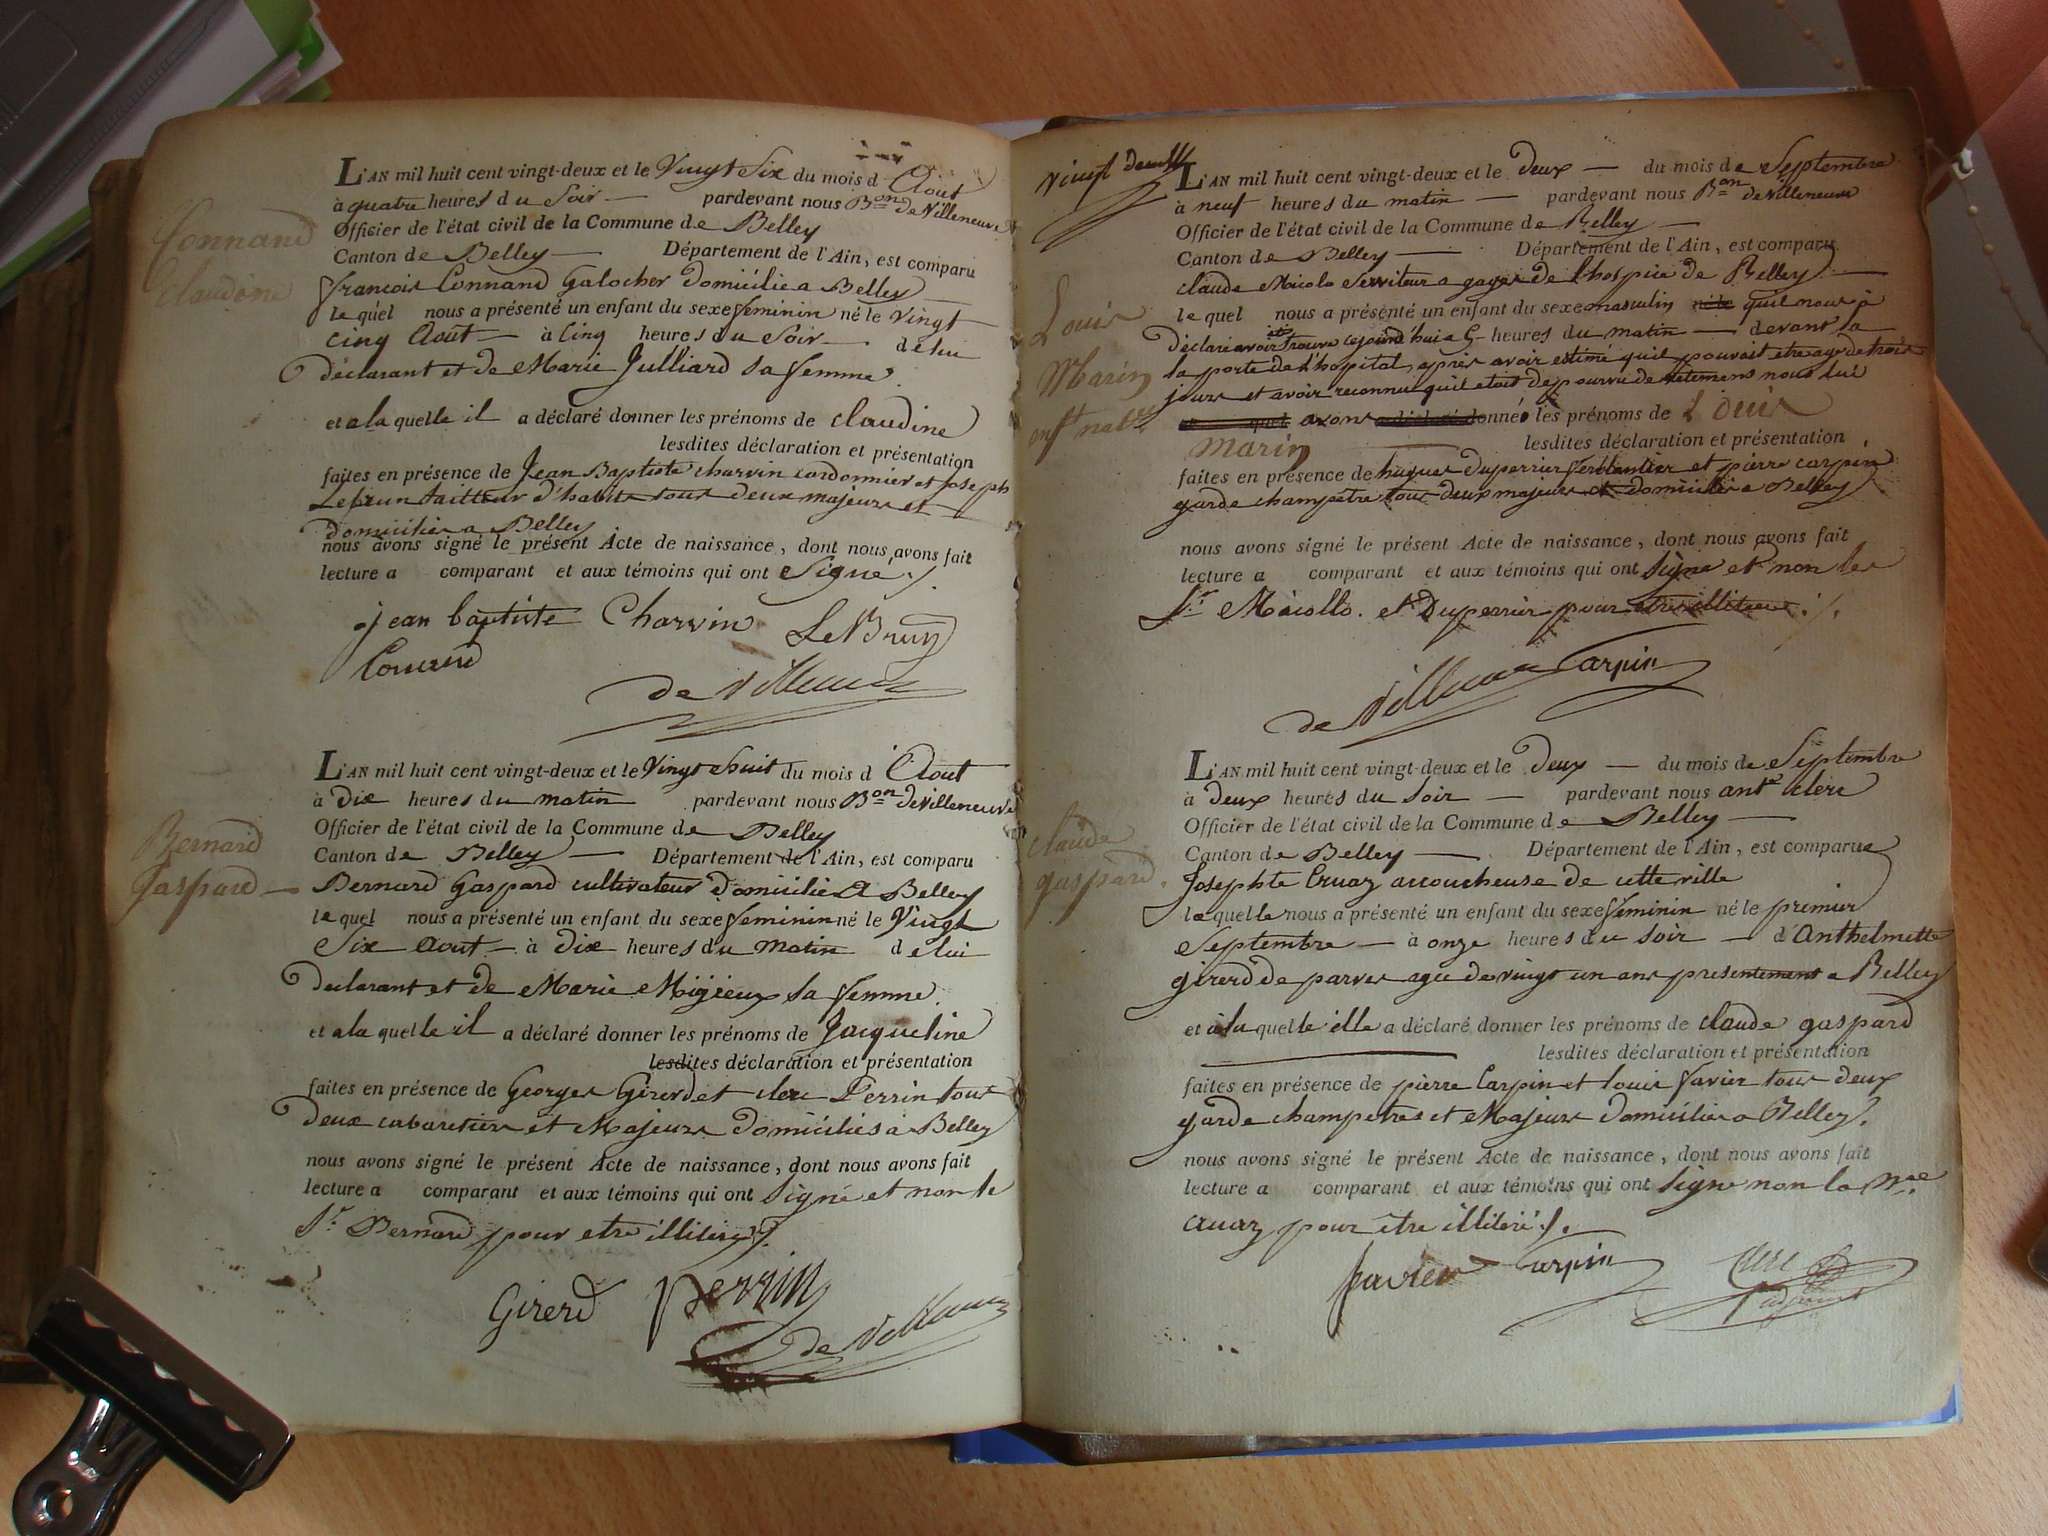 Connand
Claudine
L'AN mil huit cent vingt-deux et le Vingt Six du mois d'Aout
à quatre heures du Soir — pardevant nous Bon de Villeneuve
Officier de l'état civil de la Commune de Belley
Canton de Belley — Département de l'Ain, est comparu
françois Connand Galocher domicilié a Belley
le quel nous a présenté un enfant du sexe feminin né le vingt
cinq Aout — à Cinq heures du Soir — de lui
déclarant et de Marie Julliard sa femme
et a la quelle il a déclaré donner les prénoms de claudine
lesdites déclaration et présentation
faites en présence de Jean Baptiste charvin cordonnier et joseph
Lebrun tailleur d'habits tous deux majeurs et
domicilies a Belley
nous avons signé le présent Acte de naissance, dont nous avons fait
lecture a comparant et aux témoins qui ont Signé ./.
jean baptiste Charvin LeBrun
Connand
de Villeneuve
Bernard
Gaspard
L'AN mil huit cent vingt-deux et le Vingt huit du mois d'Aout
à dix heures du matin pardevant nous Bon de Villeneuve
Officier de l'état civil de la Commune de Belley
Canton de Belley — Département de l'Ain, est comparu
Bernard Gaspard cultivateur domicilié A Belley
le quel nous a présenté un enfant du sexe feminin né le Vingt
Six Aout — à dix heures du matin de lui
declarant et de Marie Migieux sa femme
et a la quelle il a déclaré donner les prénoms de Jacqueline
lesdites déclaration et présentation
faites en présence de Georges Girerd et clerc Perrin tous
deux cabaretiers et Majeurs domiciliés à Belley
nous avons signé le présent Acte de naissance, dont nous avons fait
lecture a comparant et aux témoins qui ont Signé et non le
Sr. Bernard pour etre illiteré ./.
Girerd Perrin
de Villeneuve
vingt deux
Louis
Marin
enft natel
L'AN mil huit cent vingt-deux et le deux — du mois de Septembre
à neuf heures du matin — pardevant nous Bon de Villeneuve
Officier de l'état civil de la Commune de Belley —
Canton de Belley — Département de l'Ain, est comparu
claude Nicolo Serviteur a gages de l'hospice de Belley —
le quel nous a présenté un enfant du sexe masculin né le qu'il nous à
déclaré avoir été trouvé cejourd'hui a 5 heures du matin — devant la
la porte de l'hopital, après avoir estimé qu'il pouvoit etre age de trois
jours et avoir reconnu qu'il etoit depourvu de vetemens nous lui
quel avons a déclaré donné les prénoms de Louis
Marin — lesdites déclaration et présentation
faites en présence de hugues duperrier et pierre carpin
garde champetre tous deux majeurs et domiciliés a Belley
nous avons signé le présent Acte de naissance, dont nous avons fait
lecture a comparant et aux témoins qui ont signé et non les
Sr. Nicollo. et Duperrier pour etre illiteré ./.
de Villeneuve Carpin
claude
gaspard.
L'AN mil huit cent vingt-deux et le deux — du mois de Septembre
à deux heures du soir — pardevant nous ant. clerc
Officier de l'état civil de la Commune de Belley —
Canton de Belley — Département de l'Ain, est comparue
Josephte Cruaz accoucheuse de cette ville
la quelle nous a présenté un enfant du sexe feminin né le premier
Septembre — à onze heures du soir — d'Anthelmette
girerd de parves agée de vingt un ans presentement a Belley
et à la quelle elle a déclaré donner les prénoms de claude gaspard
lesdites déclaration et présentation
faites en présence de pierre Carpin et louis favier tous deux
garde champetres et Majeurs domiciliés a Belley.
nous avons signé le présent Acte de naissance, dont nous avons fait
lecture a comparant et aux témoins qui ont signé non la
cruaz pour être illiteré ./.
favier Carpin Clerc
adjoint